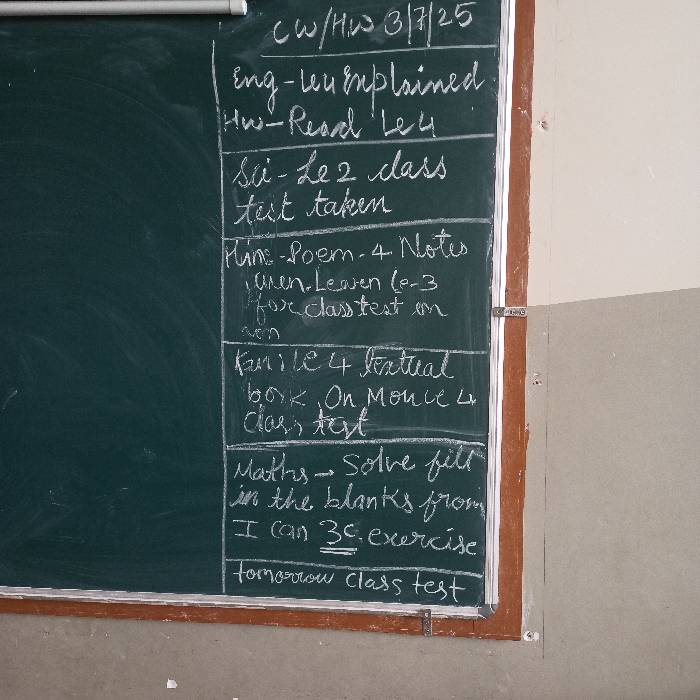 CW/HW 3/7/25
Eng - Le4 Explained
Hw - Read Le 4
Sci - Le 2 class
test taken
Hin - Poem - 4 Notes
given. Learn Le-3
for class test on
Kan Le 4 textual
work. On Mon Le 4
Class test
Maths → Solve fill
in the blanks from
I can 3c exercise
tomorrow class test